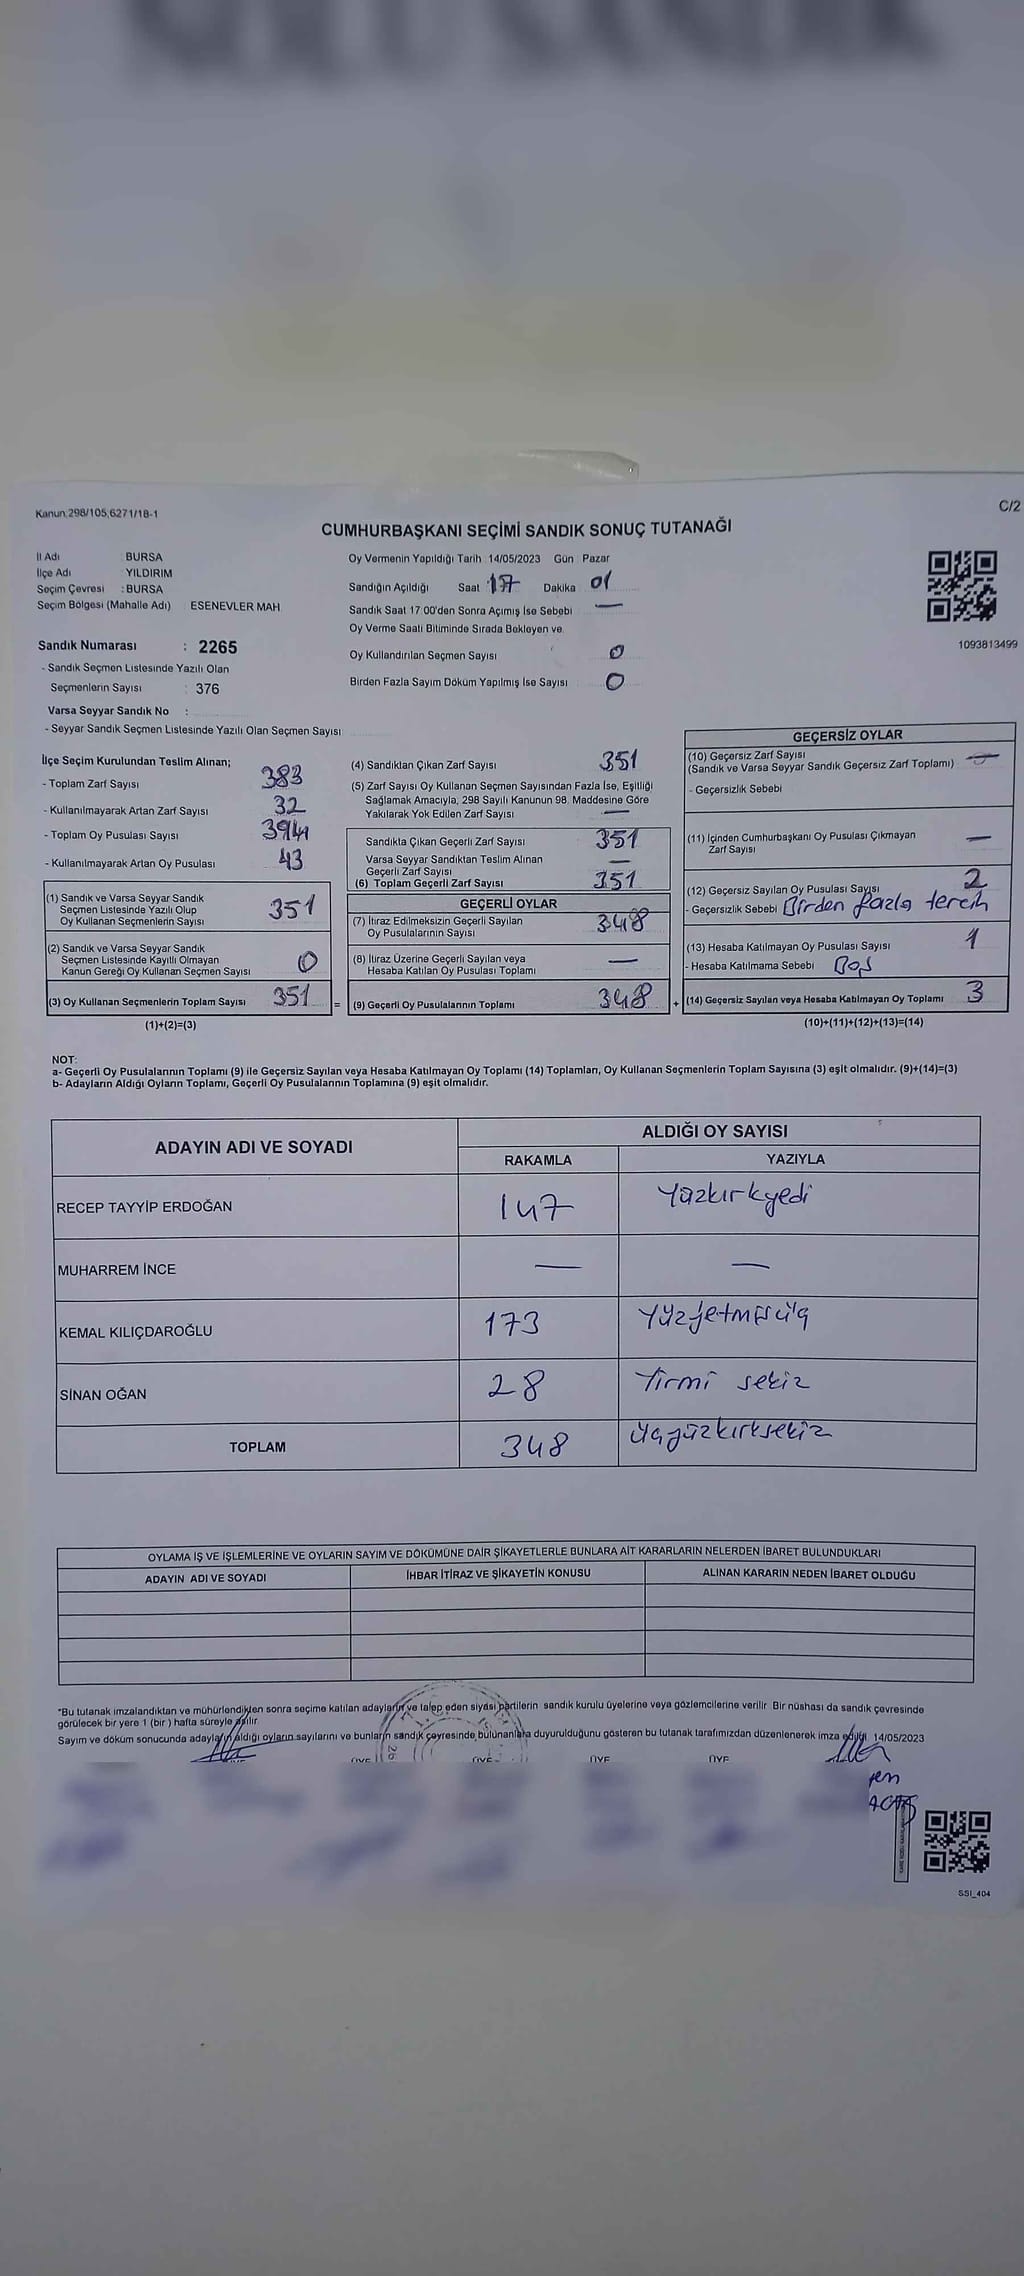 Kanun:298/105,6271/18-1
C/2
CUMHURBAŞKANI SEÇİMİ SANDIK SONUÇ TUTANAĞI
İl Adı : BURSA
İlçe Adı : YILDIRIM
Seçim Çevresi : BURSA
Seçim Bölgesi (Mahalle Adı) : ESENEVLER MAH
Sandık Numarası : 2265
- Sandık Seçmen Listesinde Yazılı Olan
Seçmenlerin Sayısı : 376
Varsa Seyyar Sandık No :
- Seyyar Sandık Seçmen Listesinde Yazılı Olan Seçmen Sayısı
Oy Vermenin Yapıldığı Tarih 14/05/2023 Gün Pazar
Sandığın Açıldığı Saat 17 Dakika 01
Sandık Saat 17:00'den Sonra Açımış İse Sebebi —
Oy Verme Saati Bitiminde Sırada Bekleyen ve
Oy Kullandırılan Seçmen Sayısı 0
Birden Fazla Sayım Döküm Yapılmış İse Sayısı 0
1093813499
İlçe Seçim Kurulundan Teslim Alınan;
- Toplam Zarf Sayısı 383
- Kullanılmayarak Artan Zarf Sayısı 32
- Toplam Oy Pusulası Sayısı
- Kullanılmayarak Artan Oy Pusulası 43
(1) Sandık ve Varsa Seyyar Sandık
Seçmen Listesinde Yazılı Olup
Oy Kullanan Seçmenlerin Sayısı 351
(2) Sandık ve Varsa Seyyar Sandık
Seçmen Listesinde Kayıtlı Olmayan
Kanun Gereği Oy Kullanan Seçmen Sayısı 0
(3) Oy Kullanan Seçmenlerin Toplam Sayısı 351 =
(1)+(2)=(3)
(4) Sandıktan Çıkan Zarf Sayısı 351
(5) Zarf Sayısı Oy Kullanan Seçmen Sayısından Fazla İse, Eşitliği
Sağlamak Amacıyla, 298 Sayılı Kanunun 98. Maddesine Göre
Yakılarak Yok Edilen Zarf Sayısı —
Sandıkta Çıkan Geçerli Zarf Sayısı 351
Varsa Seyyar Sandıktan Teslim Alınan
Geçerli Zarf Sayısı —
(6) Toplam Geçerli Zarf Sayısı 351
GEÇERLİ OYLAR
(7) İtiraz Edilmeksizin Geçerli Sayılan
Oy Pusulalarının Sayısı 348
(8) İtiraz Üzerine Geçerli Sayılan veya
Hesaba Katılan Oy Pusulası Toplamı —
(9) Geçerli Oy Pusulalarının Toplamı 348 +
GEÇERSİZ OYLAR
(10) Geçersiz Zarf Sayısı
(Sandık ve Varsa Seyyar Sandık Geçersiz Zarf Toplamı) —
- Geçersizlik Sebebi
(11) İçinden Cumhurbaşkanı Oy Pusulası Çıkmayan
Zarf Sayısı —
(12) Geçersiz Sayılan Oy Pusulası Sayısı 2
- Geçersizlik Sebebi Birden fazla tercih
(13) Hesaba Katılmayan Oy Pusulası Sayısı 1
- Hesaba Katılmama Sebebi Boş
(14) Geçersiz Sayılan veya Hesaba Katılmayan Oy Toplamı 3
(10)+(11)+(12)+(13)=(14)
NOT:
a- Geçerli Oy Pusulalarının Toplamı (9) ile Geçersiz Sayılan veya Hesaba Katılmayan Oy Toplamı (14) Toplamları, Oy Kullanan Seçmenlerin Toplam Sayısına (3) eşit olmalıdır. (9)+(14)=(3)
b- Adayların Aldığı Oyların Toplamı, Geçerli Oy Pusulalarının Toplamına (9) eşit olmalıdır.
ADAYIN ADI VE SOYADI
ALDIĞI OY SAYISI
RAKAMLA YAZIYLA
RECEP TAYYİP ERDOĞAN 147 Yüzkırkyedi
MUHARREM İNCE — —
KEMAL KILIÇDAROĞLU 173 Yüzyetmişüç
SİNAN OĞAN 28 Yirmi sekiz
TOPLAM 348 üçyüzkırksekiz
OYLAMA İŞ VE İŞLEMLERİNE VE OYLARIN SAYIM VE DÖKÜMÜNE DAİR ŞİKAYETLERLE BUNLARA AİT KARARLARIN NELERDEN İBARET BULUNDUKLARI
ADAYIN ADI VE SOYADI İHBAR İTİRAZ VE ŞİKAYETİN KONUSU ALINAN KARARIN NEDEN İBARET OLDUĞU
*Bu tutanak imzalandıktan ve mühürlendikten sonra seçime katılan adayların ve talep eden siyasi partilerin sandık kurulu üyelerine veya gözlemcilerine verilir. Bir nüshası da sandık çevresinde
görülecek bir yere 1 (bir) hafta süreyle asılır.
Sayım ve döküm sonucunda adayların aldığı oyların sayılarını ve bunların sandık çevresinde bulunanlara duyurulduğunu gösteren bu tutanak tarafımızdan düzenlenerek imza edildi. 14/05/2023
ÜYE ÜYE ÜYE ÜYE
SSI_404